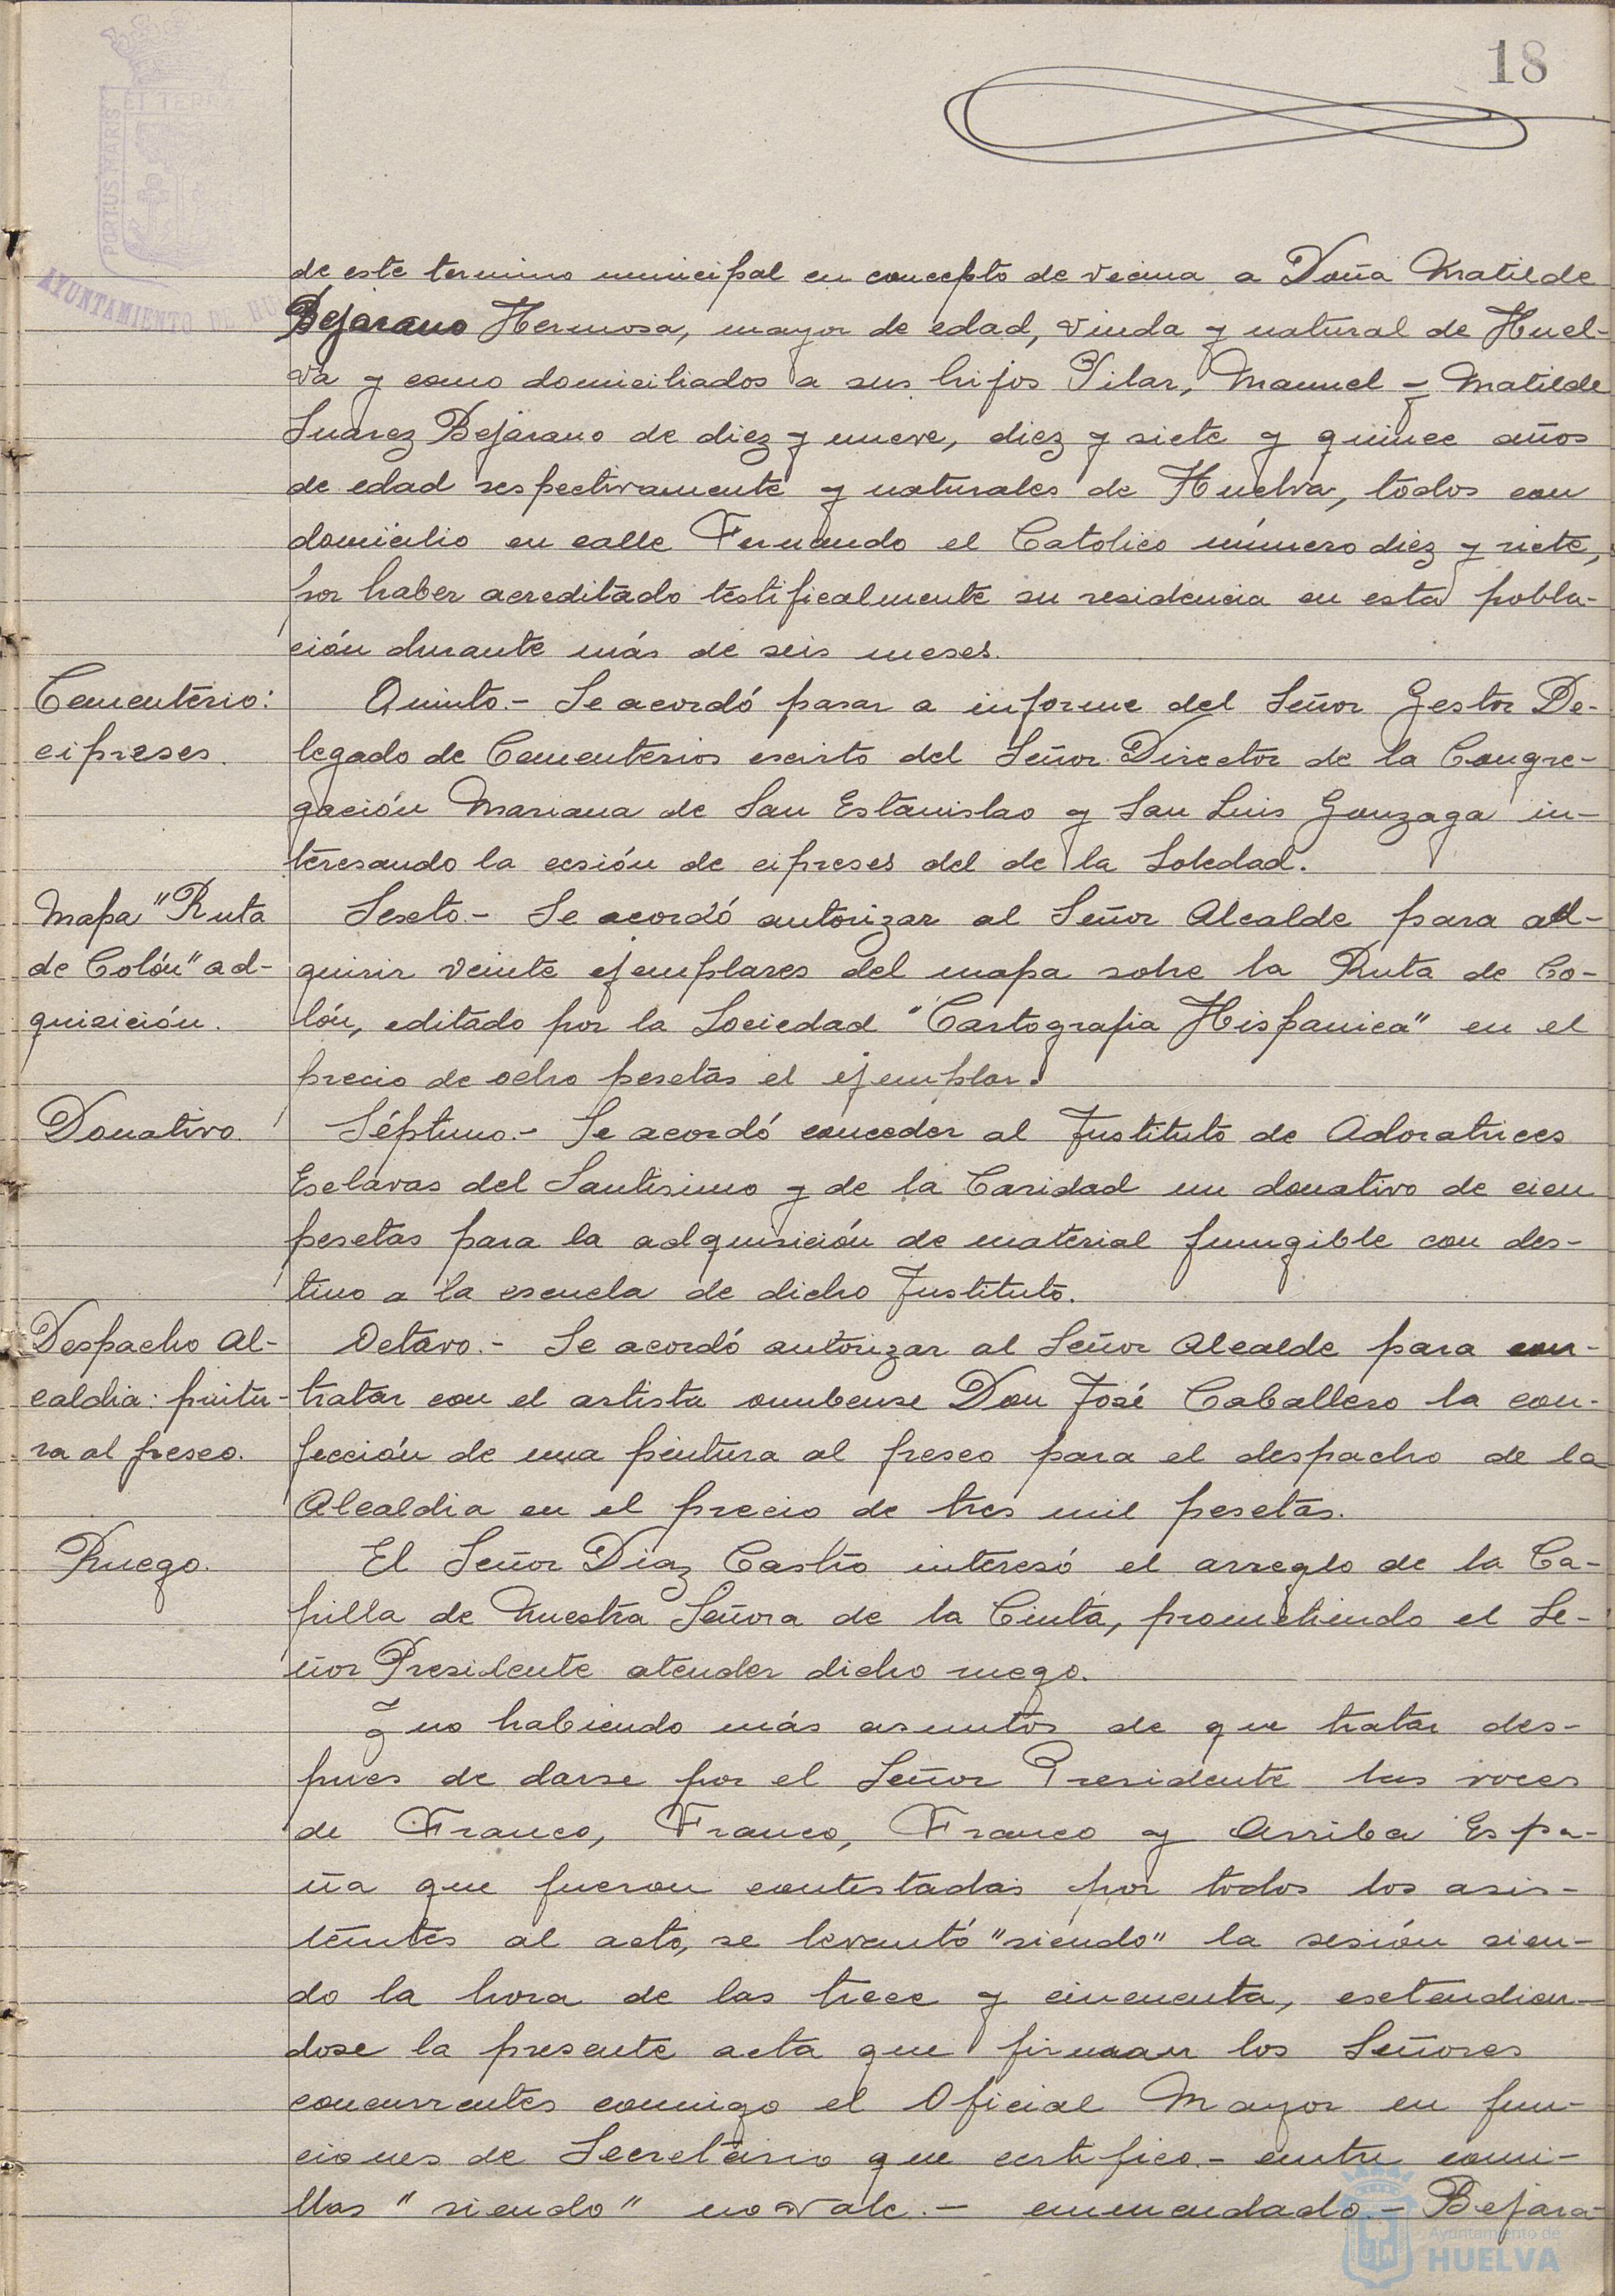 18
PORTUS MARIS
ET TERRÆ
AYUNTAMIENTO DE HU
de este termino municipal en concepto de vecina a Doña Matilde
Bejarano Hermosa, mayor de edad, viuda y natural de Huel-
va y como domiciliados a sus hijos Pilar, Manuel y Matilde
Suarez Bejarano de diez y nueve, diez y siete y quince años
de edad respectivamente y naturales de Huelva, todos con
domicilio en calle Fernando el Catolico número diez y siete,
por haber acreditado testificalmente su residencia en esta pobla-
ción durante más de seis meses.
Cementerio:
cipreses.
Quinto.- Se acordó pasar a informe del Señor Gestor De-
legado de Cementerios escrito del Señor Director de la Congre-
gación Mariana de San Estanislao y San Luis Gonzaga in-
teresando la cesión de cipreses del de la Soledad.
Mapa "Ruta
de Colón" ad-
quisición.
Sexto.- Se acordó autorizar al Señor Alcalde para ad-
quirir veinte ejemplares del mapa sobre la Ruta de Co-
lón, editado por la Sociedad "Cartografia Hispanica" en el
precio de ocho pesetas el ejemplar.
Donativo.
Séptimo.- Se acordó conceder al Instituto de Adoratrices
Esclavas del Santisimo y de la Caridad un donativo de cien
pesetas para la adquisición de material fungible con des-
tino a la escuela de dicho Instituto.
Despacho Al-
caldia: pintu-
ra al fresco.
Octavo.- Se acordó autorizar al Señor Alcalde para con-
tratar con el artista onubense Don José Caballero la con-
fección de una pintura al fresco para el despacho de la
Alcaldia en el precio de tres mil pesetas.
Ruego.
El Señor Diaz Castro interesó el arreglo de la Ca-
pilla de Nuestra Señora de la Cinta, prometiendo el Se-
ñor Presidente atender dicho ruego.
Y no habiendo más asuntos de que tratar des-
pues de darse por el Señor Presidente las voces
de Franco, Franco, Franco y Arriba Espa-
ña que fueron contestadas por todos los asis-
tentes al acto, se levantó "siendo" la sesión sien-
do la hora de las trece y cincuenta, extendien-
dose la presente acta que firman los Señores
concurrentes conmigo el Oficial Mayor en fun-
ciones de Secretario que certifico.- entre comi-
llas "siendo" no vale.- enmendado.- Bejara-
Ayuntamiento de
HUELVA